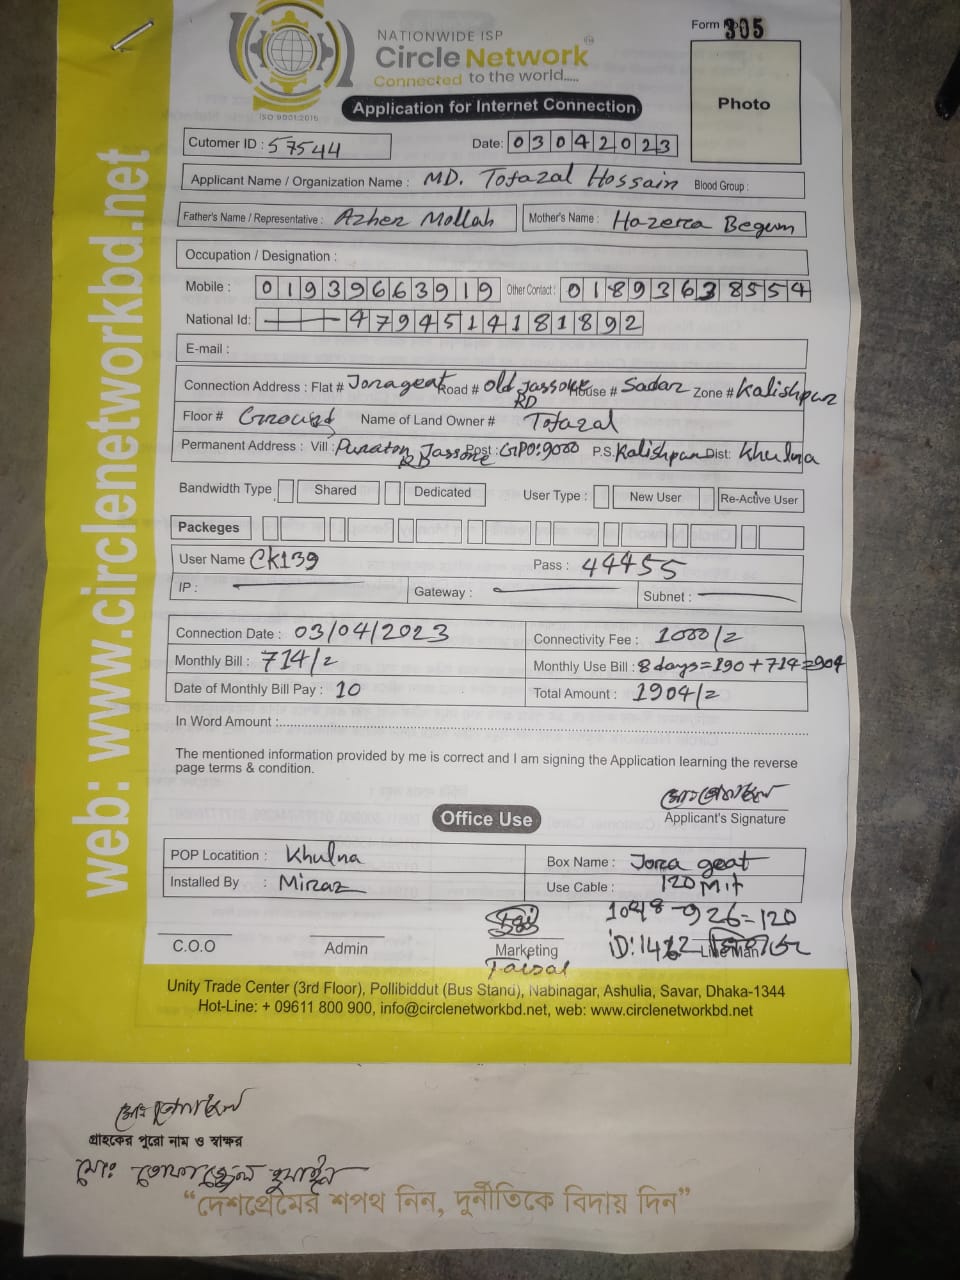 NATIONWIDE ISP
Circle Network
Connected to the world.....
ISO 9001:2015
Form No 305
Application for Internet Connection
Photo
Cutomer ID : 57544
Date: 03042023
Applicant Name / Organization Name : MD. Tofazal Hossain Blood Group :
Father's Name / Representative : Azher Mollah Mother's Name : Hazera Begum
Occupation / Designation :
Mobile : 01939663919 Other Contact : 01893638554
National Id: 4794514181892
E-mail :
Connection Address : Flat # Jorageat Road # Old Jassore RD House # Sadar Zone # Kalishpur
Floor # Ground Name of Land Owner # Tofazal
Permanent Address : Vill : Puraton Jassore RD Post : GPO:9000 P.S. Kalishpur Dist: Khulna
Bandwidth Type Shared Dedicated User Type : New User Re-Active User
Packeges
User Name CK139 Pass : 44455
IP : Gateway : Subnet :
Connection Date : 03/04/2023 Connectivity Fee : 1000/=
Monthly Bill : 714/= Monthly Use Bill : 8 days=190+714=904
Date of Monthly Bill Pay : 10 Total Amount : 1904/=
In Word Amount :
The mentioned information provided by me is correct and I am signing the Application learning the reverse
page terms & condition.
Applicant's Signature
Office Use
POP Locatition : Khulna Box Name : Jora geat
Installed By : Miraz Use Cable : 120 Mit
1048-926=120
C.O.O Admin Marketing iD:1412 Line Man
Faisal
Unity Trade Center (3rd Floor), Pollibiddut (Bus Stand), Nabinagar, Ashulia, Savar, Dhaka-1344
Hot-Line: + 09611 800 900, info@circlenetworkbd.net, web: www.circlenetworkbd.net
web: www.circlenetworkbd.net
গ্রাহকের পুরো নাম ও স্বাক্ষর
মোঃ তোফাজ্জেল হুসাইন
“দেশপ্রেমের শপথ নিন, দুর্নীতিকে বিদায় দিন”